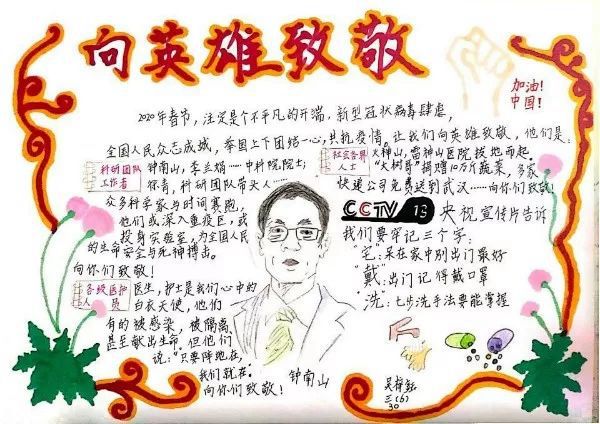 向英雄致敬
加油!
中国!
2020年春节,注定是个不平凡的开端,新型冠状病毒肆虐,
全国人民众志成城,举国上下团结一心,共抗疫情。让我们向英雄致敬,他们是:
科研团队
工作者
钟南山,李兰娟……中科院院士,
怀着,科研团队带夫人……
众多科学家与时间赛跑,
他们或深入重疫区,或
投身实验室,为全国人民
的生命安全与死神搏击。
向你们致敬!
各级医护
人员
医生,护士是我们心中的
白衣天使,他们
有的被感染,被隔离,
甚至献出生命。但他们
说:"只要阵地在,
我们就在。
向你们致敬!
钟南山
社会各界
人士
火神山,雷神山医院拔地而起。
"大树哥"捐赠10万斤蔬菜,多家
快递公司免费送到武汉……向你们致敬!
CCTV 13 央视宣传片告诉
我们要牢记三个字:
"宅:呆在家中别出门最好
"戴:出门记得戴口罩
"洗:七步洗手法要能掌握
三(6)
30